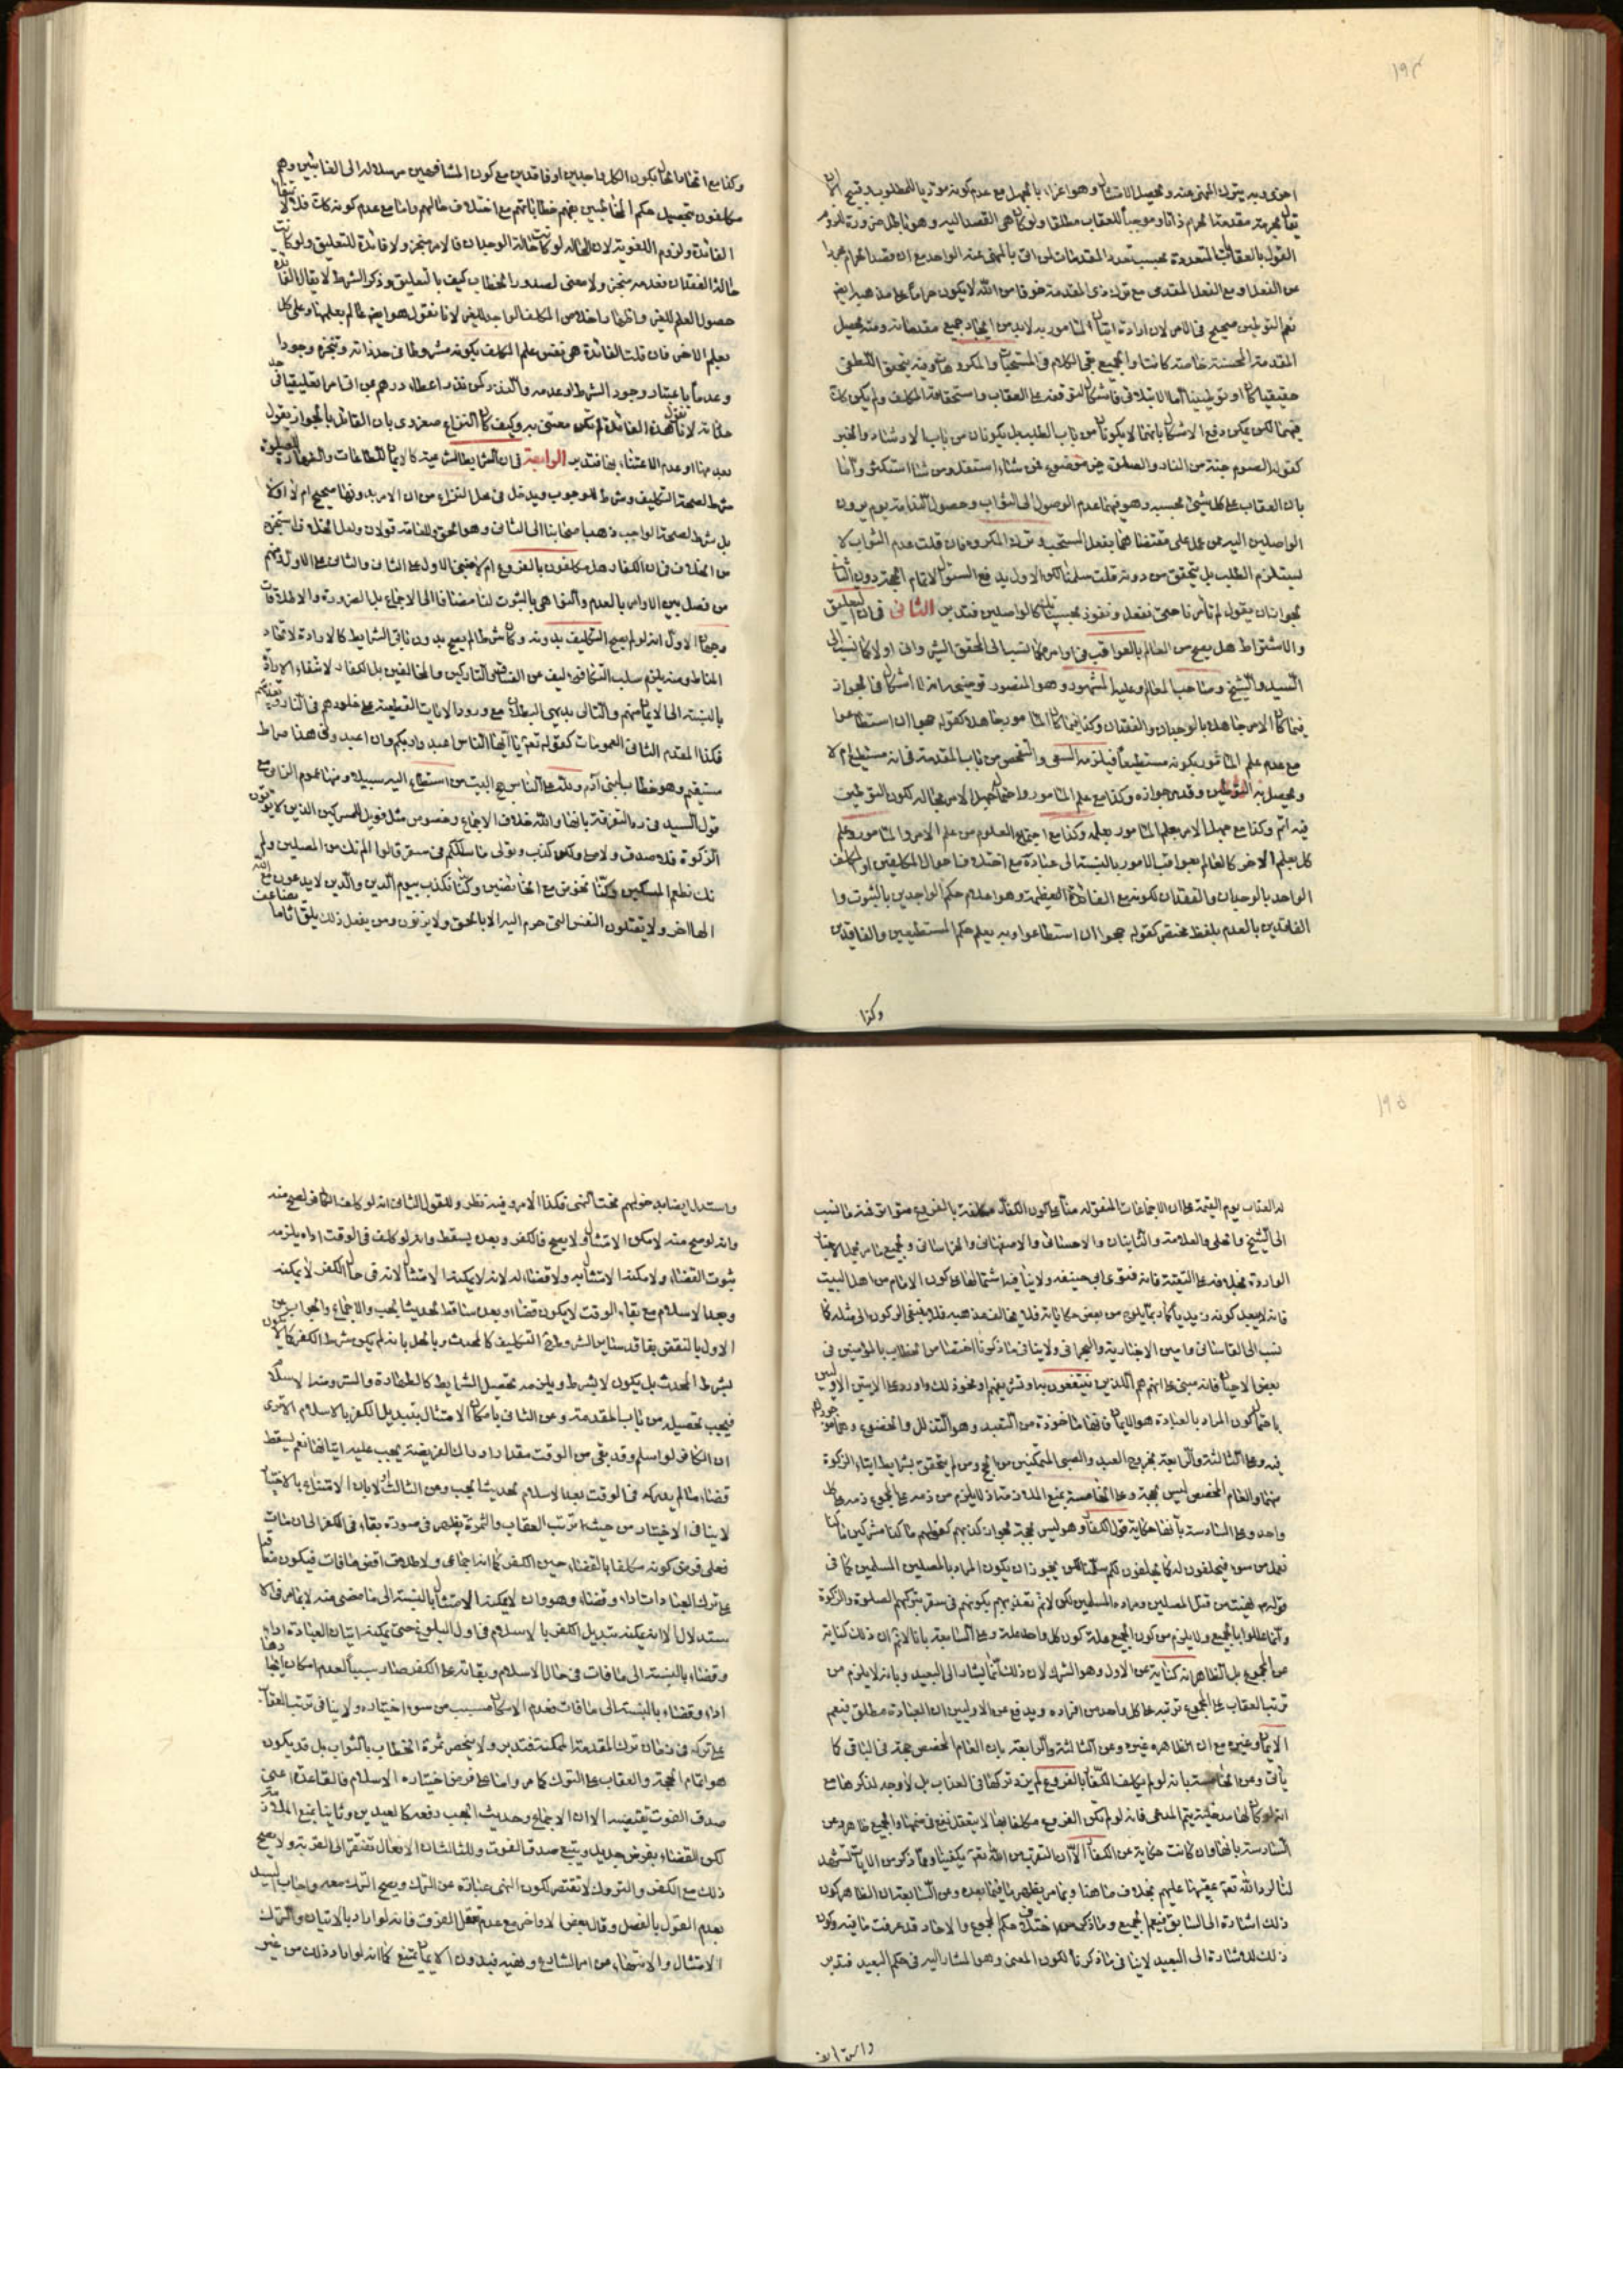 ١٩٤
احترى وبه يترك المنهى عنه ويحصل الامتثال وهو اغراء بالجهل مع عدم كونه مؤديا للمطلوب وقبيح الا ان
يقال بحرمة مقدمة الحرام ذاتا وموجبا للعقاب مطلقا ولو كان هى القصد اليه وهو باطل ضرورة لزوم
القول بالعقابات المتعددة بحسب تعدد المقدمات لو اتى بالمنهى عنه الواحد مع ان قصد الحرام مجردا
عن الفعل او مع الفعل المقدمى مع ترك ذى المقدمة خوفا من الله لا يكون حراما على مذهبه ايضا
نعم التوطين صحيح فى الامر لان ارادة اتيان المامور به لا بد من ايجاد جميع مقدماته ومنه يحصل
المقدمة المحسنة خاصة كانت او الجميع بقى الكلام فى المستحبات والمكروهات وفيه يتحقق اللطفى
حقيقيا كان او توطينيا اما الابتلائى فاشكال لتوقفه على العقاب واستحقاقه المكلف ولم يكن كان
فيهما لكن يمكن دفع الاشكال بانهما لا يكونان من باب الطلب بل يكونان من باب الارشاد والخبر
كقوله الصوم جنة من النار والصلوة خير موضوع فمن شاء استقل ومن شاء استكثر واما
بان العقاب على كل شيئ بحسبه وهو فيهما عدم الوصول الى الثواب وحصول الندامة يوم يرون
الواصلين اليه من عمل على مقتضاهما بفعل المستحب وترك المكروه فان قلت عدم الثواب لا
يستلزم الطلب بل يتحقق من دونه قلت سلمنا لكن الاول يدفع السئول لاتمام الحجة دون الثانى
يجوز ان يقول لم تأمرنا حتى نفعل ونفوز بحسب تلك كالواصلين فتدبر الثانى فى ان التعليق
والاشتراط هل يصح من العالم بالعواقب فى اوامره كما نسب الى المحقق الشروانى او لا كما نسب الى
السيد والشيخ وصاحب المعالم وعليه المشهور وهو المنصور توضيحه انه لا اشكال فى الجواز
فيما كان الامر جاهلا بالوجدان والفقدان وكذا فيما كان المامور جاهلا كقوله حجوا ان استطاعوا
مع عدم علم المأمور بكونه مستطيعا فيلزمه السعى والتفحص من باب المقدمة فى انه مستطيع ام لا
ويحصل به التوطين وقد مر جوازه وكذا مع علم المامور واحتمال جهل الامر بحاله لكون التوطين
فيه اتم وكذا مع جهل الامر بعلم المامور بعلمه وكذا مع اجتماع العلوم من علم الامر والمامور وعلم
كل بعلم الاخر كالعالم بعواقب الامور بالنسبة الى عبادة مع اختلاف احوال المكلفين او المكلف
الواحد بالوجدان والفقدان لكونه مع الفائدة العظيمة وهو اعلام حكم الواجدين بالثبوت وا
الفاقدين بالعدم بلفظ مختصر كقوله حجوا ان استطاعوا وبه يعلم حكم المستطيعين والفاقدين
وكذا
وكذا مع اتحاد الحال بكون الكل واجدين او فاقدين مع كون المشافهين مرسلا له الى الغائبين وهم
مكلفون بتحصيل حكم المخاطبين بفهم خطاباتهم مع اختلاف حالهم واما مع عدم كونه كان فلا لانتفاء
الفائدة ولزوم اللغوية لان الحالة لو كانت حالة الوجدان فالامر منجز ولا فائدة للتعليق ولو كانت
حالة الفقدان فعدمه منجز ولا معنى لصدور الخطاب كيف بالتعليق وذكر الشرط لا يقال الفائدة
حصول العلم للغير واظهار اخلاص المكلف الواجد للغير لانا نقول هو ايضا عالم بعلمهما وعلى كل
بعلم الاخر فان قلت الفائدة هى نفس علم المكلف بكونه مشروطا فى حد ذاته وتنجزه وجودا
وعدما باعتبار وجود الشرط او عدمه والا لنذر كمن نذر اعطاء درهم من اقام امرا تعليقيا فى حد
ذاته لانا نقول هذه الفائدة لم تكن معتنى به وكيف كان النزاع صغروى بان القائل بالجواز يقول
بعد مها او عدم الاعتناء بها فتدبر الرابعة فى ان الشرايط الشرعية كالايمان للطاعات والطهارة للصلوة
شرط لصحة التكليف وشرط للوجوب ويدخل فى محل النزاع من ان الامر بدونها صحيح ام لا او لا
بل شرط لصحة الواجب ذهب اصحابنا الى الثانى وهو الحق وللعامة قولان ولعل الخلاف ناشئ
من الخلاف فى ان الكفار هل مكلفون بالفروع ام لا فبنى الاول على الثانى والثانى على الاول ومنهم
من فصل بين الاوامر بالعدم والنواهى بالثبوت لنا مضافا الى الاجماع بل الضرورة والاطلاقات
وجهان الاول انه لو لم يصح التكليف بدونه وكان شرطا لم يصح بدون باقى الشرايط كالارادة لاتحاد
المناط ومنه يلزم سلب التكاليف عن الفساق والتاركين والمخالفين بل الكفار لانتفاء الارادة
بالنسبة الى الايمان منهم والتالى بديهى البطلان مع ورود الايات القطعية على خلودهم فى النار وتعذيبهم
فكذا المقدم الثانى العمومات كقوله تعالى يا ايها الناس اعبدوا ربكم وان اعبدونى هذا صراط
مستقيم وهو خطاب لبنى آدم ولله على الناس حج البيت من استطاع اليه سبيلا ومنها عموم النافى مع
قول السيد فى رد التفرقة بانها والله خلاف الاجماع وخصوص مثل فويل للمشركين الذين لا يؤتون
الزكوة فلا صدق ولا صلى ولكن كذب وتولى ما سلككم فى سقر قالوا لم نك من المصلين ولم
نك نطعم المسكين وكنا نخوض مع الخائضين وكنا نكذب بيوم الدين والذين لا يدعون مع الله
الها اخر ولا يقتلون النفس التى حرم الله الا بالحق ولا يزنون ومن يفعل ذلك يلق اثاما يضاعف
١٩٥
له العذاب يوم القيمة على ان الاجماعات المنقولة منا على كون الكفار مكلفة بالفروع متواترة فما نسب
نسب الى القاسانى وامين الاخبارية والبحرانى ولا ينافى ما ذكرنا اختصاص الخطاب بالمؤمنين فى
باحتمال كون المراد بالعبادة هو الايمان فانها ماخوذة من التعبد وهو التذلل والخضوع وهما موجودان
فيه وعلى الثالثة والرابعة بخروج العبد والصبى المتمكنين من الحج ومن لم يتحقق شرايط ايتاء الزكوة
منهما والعام المخصص ليس بحجة وعلى الخامسة بمنع الملازمة اذ لا يلزم من ذمه على المجموع ذمه على كل
واحد وعلى السادسة بانها حكاية قول الكفار وهو ليس بحجة بجواز كذبهم كقولهم ما كنا مشركين ما كنا
نعمل من سوء فيحلفون له كما يحلفون لكم سلمنا لكن يجوز ان يكون المراد بالمصلين المسلمين كما فى
قوله نهيت من قتل المصلين ومراده المسلمين لكن لا نم تعذيبهم بكونهم فى سقر بتركهم الصلوة والزكوة
وانما عللوا بالجميع ولا يلزم من كون الجميع علة كون كل واحد علة وعلى السابعة بانا لا نم ان ذلك كناية
عن المجموع بل الظاهر انه كناية عن الاول وهو الشرك لان ذلك انما يشار الى البعيد وبانه لا يلزم من
ترتب العقاب على المجموع ترتبه على كل واحد من افراده ويدفع عن الاوليين ان العبادة مطلق فيعم
الايمان وغيره مع ان الظاهر غيره وعن الثالثة والرابعة بان العام المخصص حجة فى الباقى كما
يأتى وعن الخامسة بانه لو لم يكلف الكفار بالفروع لم يزد تركها فى العذاب بل لا وجه لذكرها مع
السادسة بانها وان كانت حكاية عن الكفار الا ان التقريب من الله تعالى يكفينا
ذلك اشارة الى السابق فيعم الجميع وما ذكر من اختلاف حكم المجموع والاحاد قد عرفت ما فيه وكون
ذلك للاشارة الى البعيد لا ينافى ما ذكرنا لكون المعنى وهو المشار اليه فى حكم البعيد فتدبر
واستدل ايضا
واستدل ايضا بدخولهم تحت النهى فكذا الامر وفيه نظر وللقول الثانى انه لو كلف الكافر لصح منه
وانه لو صح منه لامكن الامتثال ولا يصح فى الكفر وبعده يسقط وانه لو كلف فى الوقت اداء يلزمه
ثبوت القضاء ولا يمكنه الامتثال به ولا قضاء له لانه لا يمكنه الامتثال لانه فى حال الكفر لا يمكنه
وبعد الاسلام مع بقاء الوقت لا يكون قضاء وبعده ساقط لحديث الجب والاجماع والجواب عن
الاول بالنقض بفاقد ساير الشروط من التكليف كالمحدث وبالحل بانه لم يكن بشرط الكفر كما لا يكون
بشرط الحدث بل يكون لا بشرط ويلزمه تحصيل الشرايط كالطهارة والستر ومنه الاسلام
فيجب تحصيله من باب المقدمة وعن الثانى بامكان الامتثال بتبديل الكفر بالاسلام
ان الكافر لو اسلم وقد بقى من الوقت مقدار ادراك الفريضة يجب عليه اتيانها نعم يسقط
قضاء ما لم يدركه فى الوقت بعد الاسلام لحديث الجب وعن الثالث اولا بان الامتناع بالاختيار
لا ينافى الاختيار من حيث ترتب العقاب والثمرة يظهر فى صورة بقائه فى الكفر الى ان مات
على ترك العبادات اداء وقضاء وهو وان لا يمكنه الامتثال بالنسبة الى ما مضى منه
وقضاء بالنسبة الى ما فات فى حال الاسلام وبقائه على الكفر صار سببا لعدم امكان ايجادها
اداء وقضاء بالنسبة الى ما فات فعدم الامكان مسبب من سوء اختياره ولا ينافى ترتب العقاب
على تركه فى زمان ترك المقدمة الممكنة فتدبر ولا ينحصر ثمرة الخطاب بالثواب بل قد يكون
هو اتمام الحجة والعقاب على الترك كما مر واما على فرض اختياره الاسلام فالقاعدة اعنى
صدق الفوت يقتضيه الا ان الاجماع وحديث الجب دفعه كالعيدين وثانيا بمنع الملازمة
لكون القضاء بفرض جديد ويتبع صدق الفوت وللثالث ان الافعال تفتقر الى القربة ولا يصح
ذلك مع الكفر والتروك لا تفتقر لكون النهى عبارة عن الترك ويصح الترك معه واجاب السيد
بعدم القول بالفصل وقال بعض الاواخر مع عدم تعقل الفرق فانه لو اراد بالاتيان والترك
الامتثال والانتهاء عن امر الشارع ونهيه فبدون الايمان يمتنع كما انه لو اراد ذلك من غير